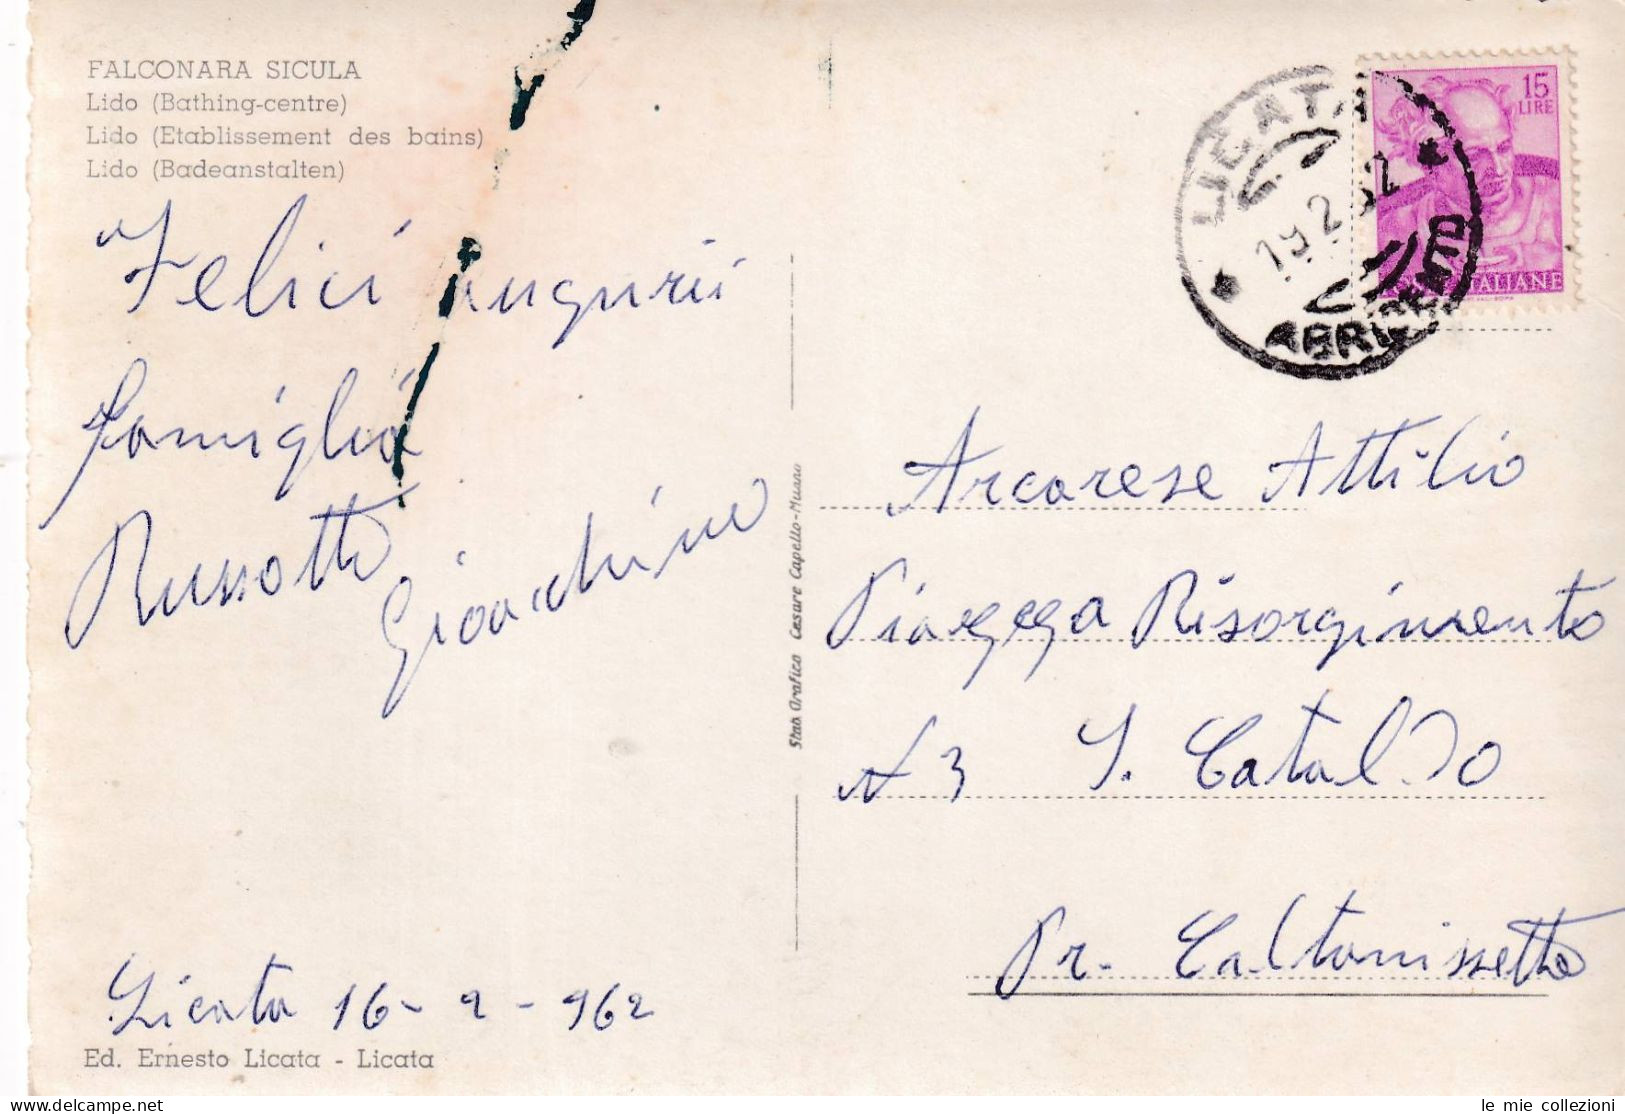 FALCONARA SICULA
Lido (Bathing-centre)
Lido (Etablissement des bains)
Lido (Badeanstalten)
Felici auguri
famiglia
Russotto
Gioacchino
Licata 16-2-962
Ed. Ernesto Licata - Licata
Stab. Grafico Cesare Capello-Milano
LICATA
19.2.62
AGRIGENTO
15
LIRE
ITALIANE
Arcarese Attilio
Piazza Risorgimento
N 3 S. Cataldo
Pr. Caltanissetta
le mie collezioni